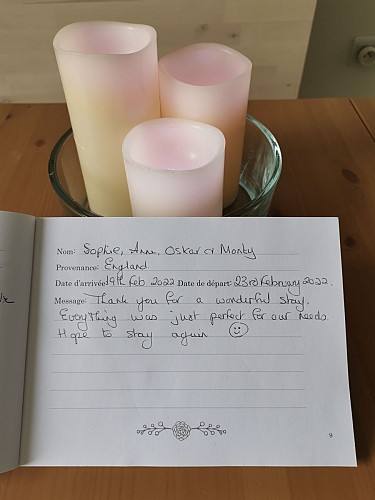 Nom: Sophie, Anne, Oskar & Monty
Provenance: England
Date d'arrivée: 19th Feb 2022 Date de départ: 23rd February 2022.
Message: Thank you for a wonderful stay.
Everything was just perfect for our needs
Hope to stay again ☺
9